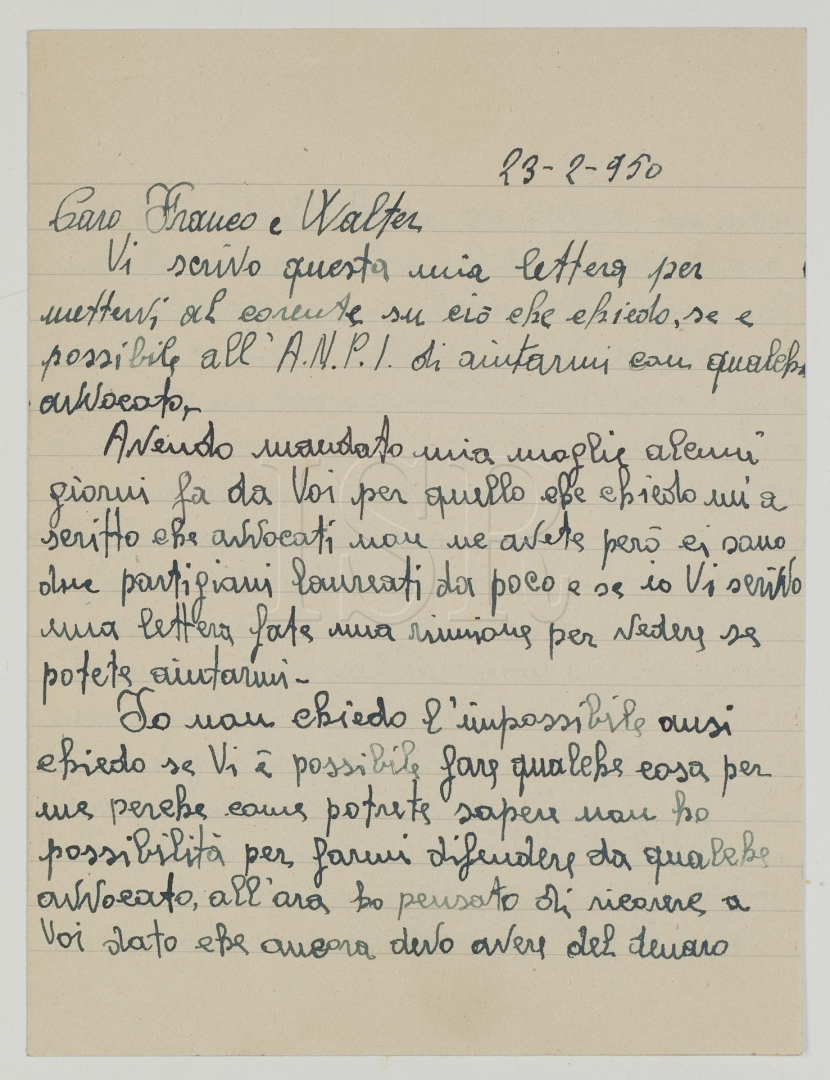 23-2-950
Caro Franco e Walter
Vi scrivo questa mia lettera per
mettervi al corente su ciò che chiedo, se e
possibile all'A.N.P.I. di aiutarmi con qualche
avvocato,-
Avendo mandato mia moglie alcuni
giorni fa da Voi per quello che chiedo mi a
scritto che avvocati non ne avete però ci sono
due partigiani laureati da poco e se io Vi scrivo
una lettera fate una riunione per vedere se
potete aiutarmi-
Io non chiedo l'impossibile ansi
chiedo se Vi è possibile fare qualche cosa per
me perche come potrete sapere non ho
possibilità per farmi difendere da qualche
avvocato, all'ora ho pensato di ricorere a
Voi dato che ancora devo avere del denaro
ISR